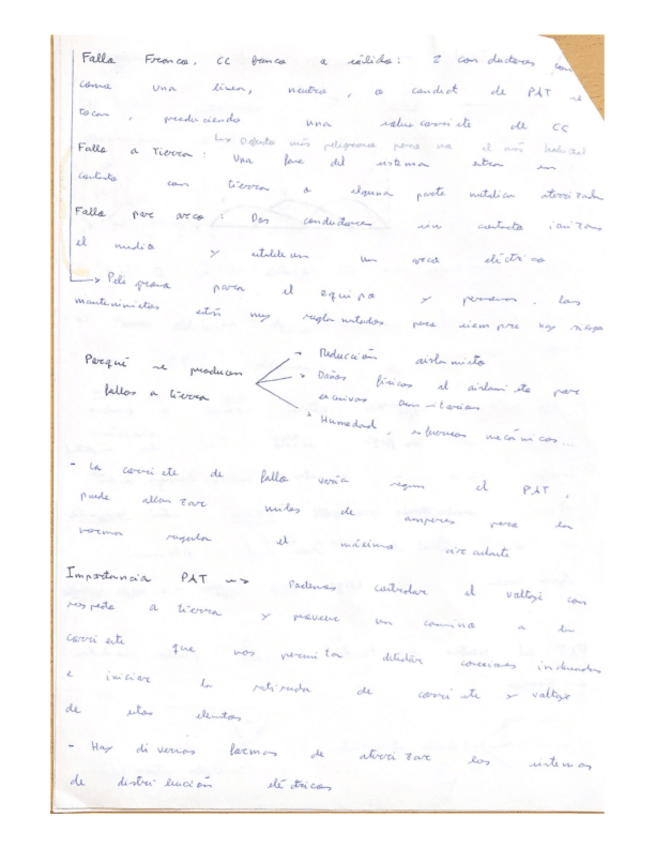 Falla Franca, CC franca o sólida: 2 conductores
como una línea, neutro, o conduct de PAT se
tocan, produciendo una corriente de CC
Los Defecto más peligroso pero no el más habitual
Falla a Tierra: Una fase del sistema entra en
contacto con tierra o alguna parte metálica aterrizada
Falla por arco: Dos conductores sin contacto ionizan
el medio y establecen un arco eléctrico
→ Peligrosa para el equipo y personas. Los
mantenimientos están muy reglamentados pero siempre hay riesgo
Porqué se producen
fallos a tierra
→ Reducción aislamiento
→ Daños físicos al aislamiento por
excesivos
→ Humedad, esfuerzos mecánicos...
- La corriente de falla varía según el PAT,
puede alcanzar miles de amperes pero la
norma regula el máximo circulante
Importancia PAT => Podemos controlar el voltaje con
respecto a tierra y proveer un camino a la
corriente que nos permita detectar conexiones indeseadas
e iniciar la retirada de corriente y voltaje
de estos elementos
- Hay diversas formas de aterrizar los sistemas
de distribución eléctricos